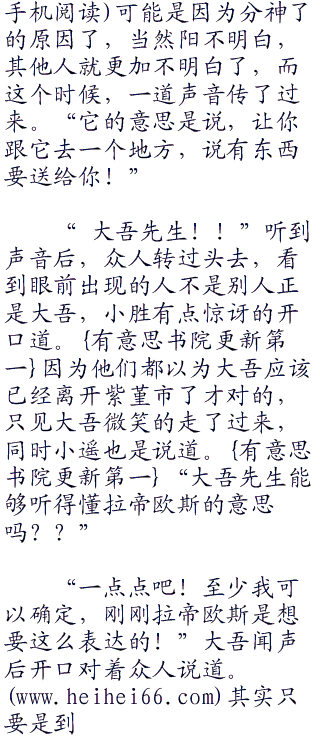 手机阅读)可能是因为分神了
的原因了，当然阳不明白，
其他人就更加不明白了，而
这个时候，一道声音传了过
来。“它的意思是说，让你
跟它去一个地方，说有东西
要送给你！”
“ 大吾先生！！”听到
声音后，众人转过头去，看
到眼前出现的人不是别人正
是大吾，小胜有点惊讶的开
口道。{有意思书院更新第
一}因为他们都以为大吾应该
已经离开紫堇市了才对的，
只见大吾微笑的走了过来，
同时小遥也是说道。{有意思
书院更新第一}“大吾先生能
够听得懂拉帝欧斯的意思
吗？？”
“一点点吧！至少我可
以确定，刚刚拉帝欧斯是想
要这么表达的！”大吾闻声
后开口对着众人说道。
(www.heihei66.com)其实只
要是到